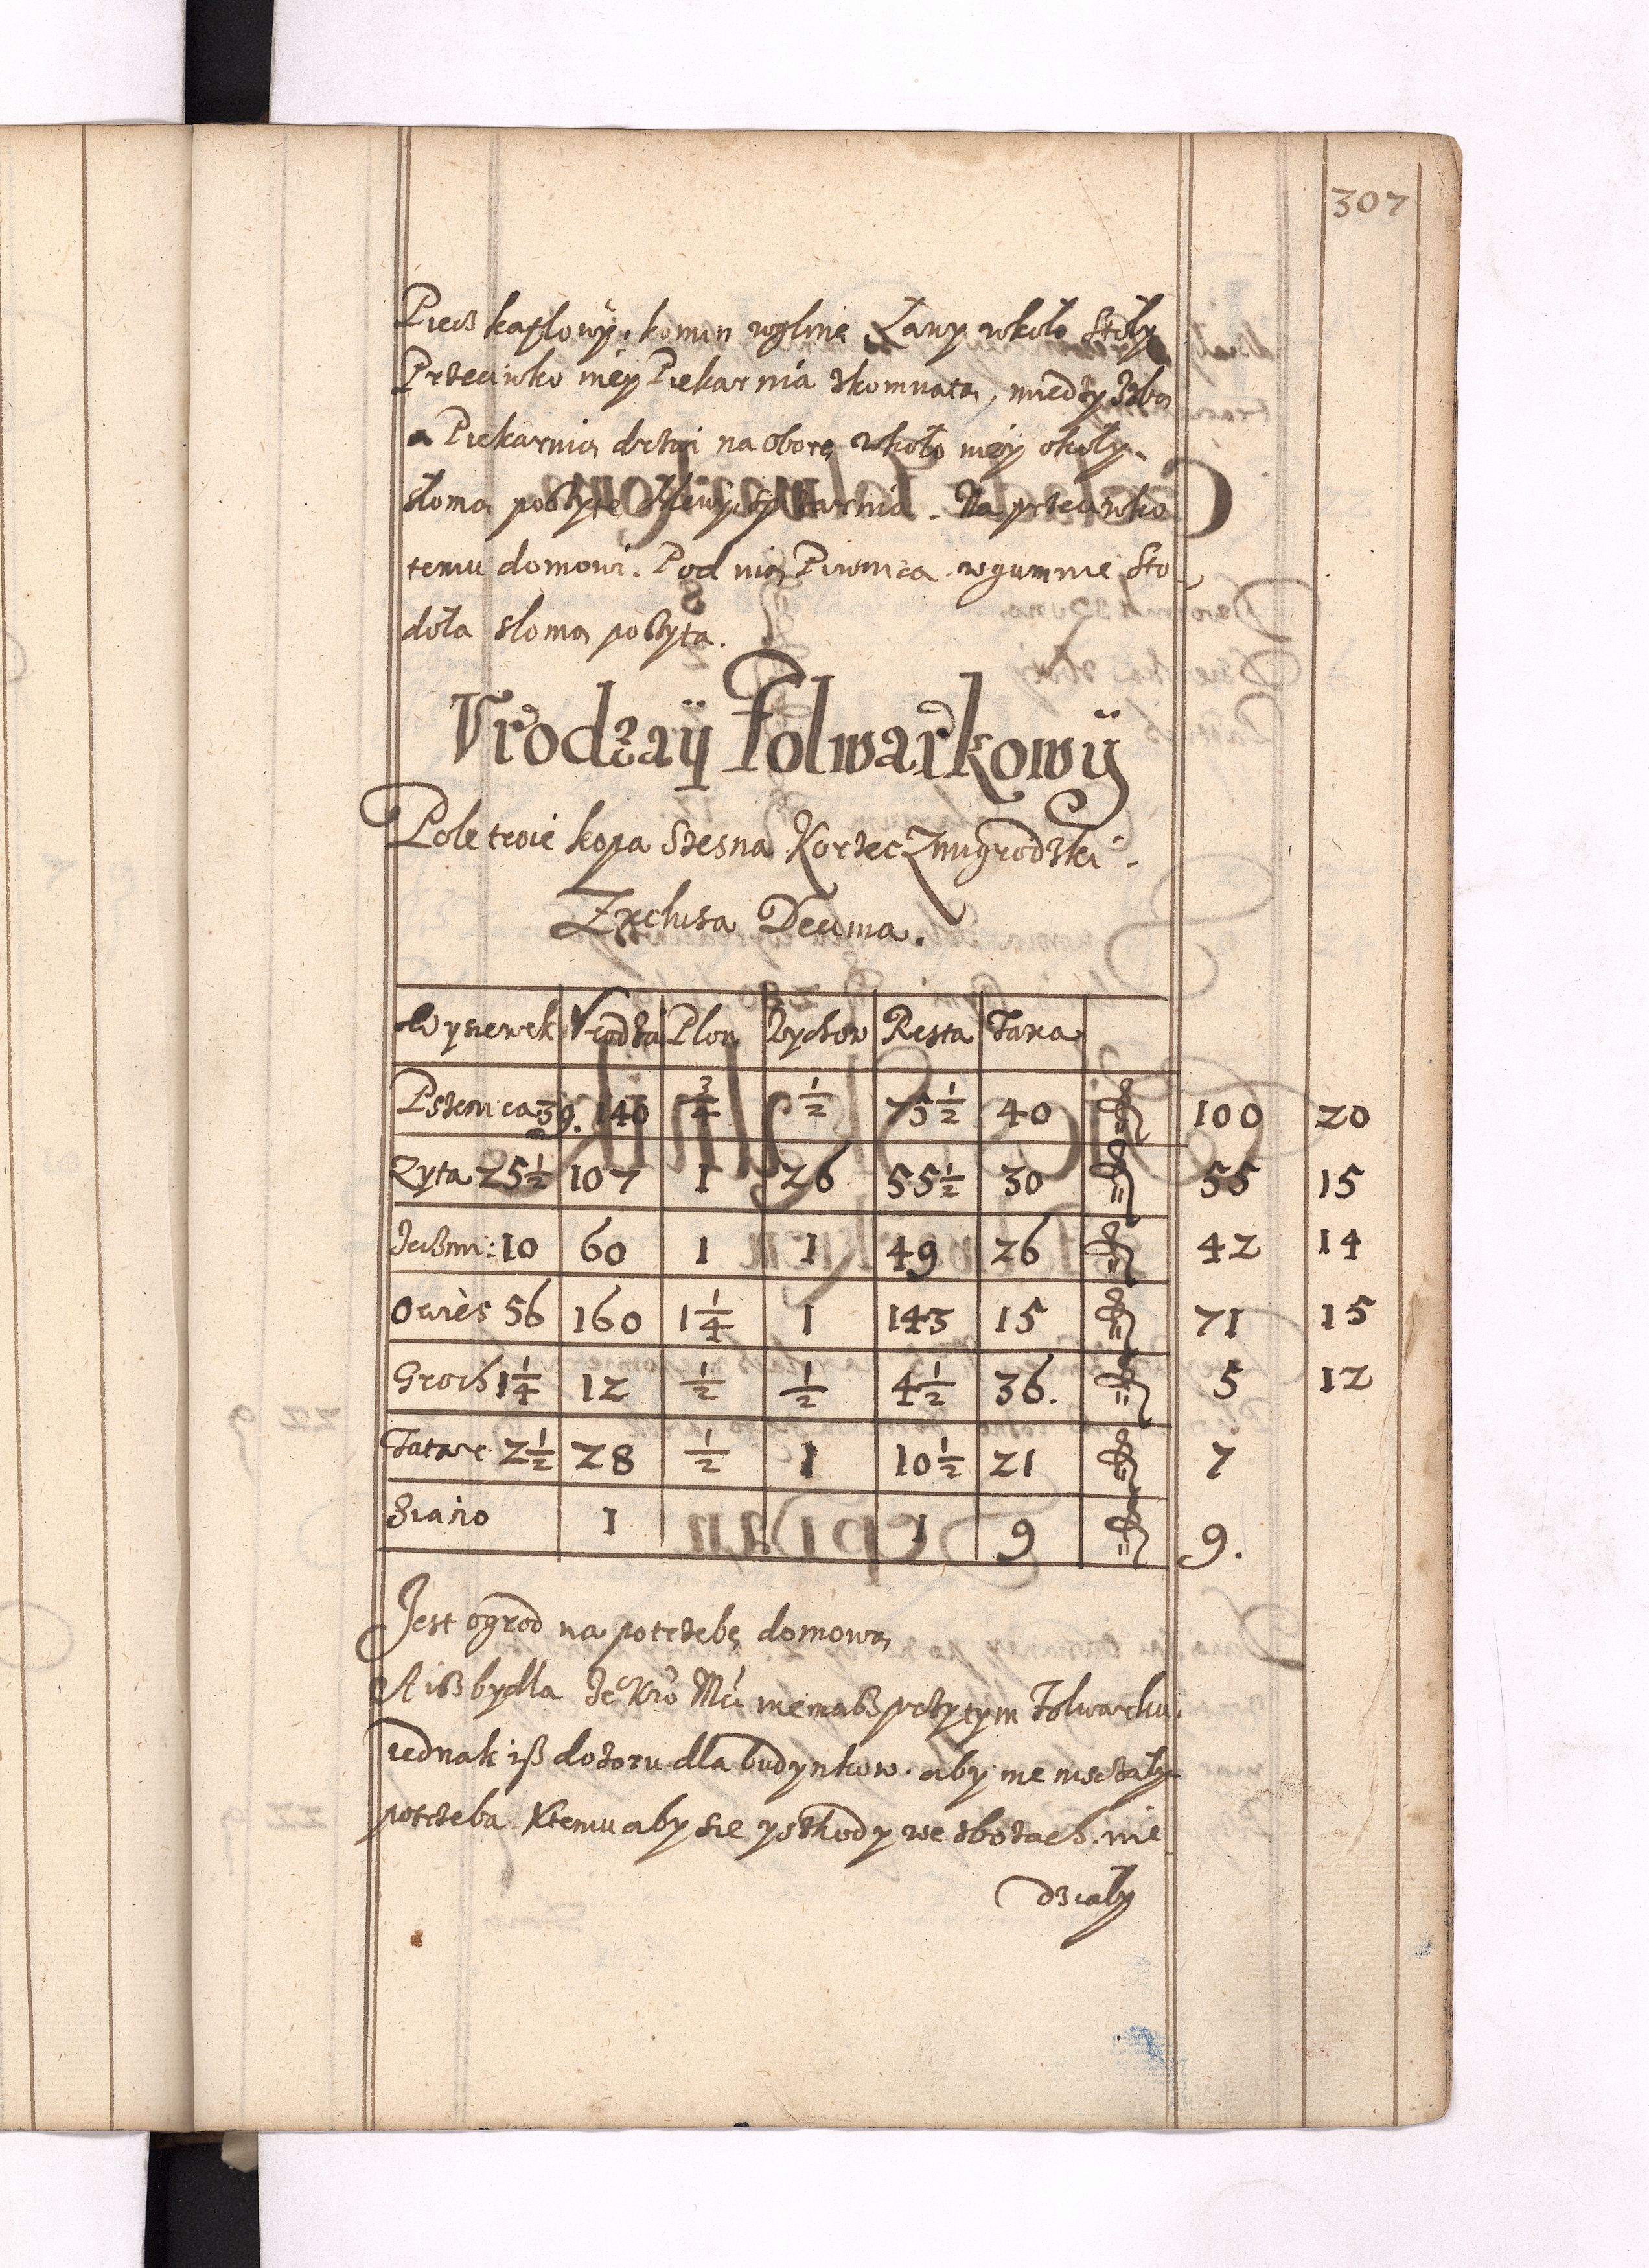 307
Piecz kaflowÿ, komin wglinę Ławy wkoło Stoły
Przeciwko niéÿ Piekarnia zkomnatą, miedzy Izbą
a Piekarnią drzwi na Oborę wkoło niéÿ okoły.
słomą poszyte Piekarnia. Na przeciwko
temu domowi. Pod nią Piwnica. wgumnie Sto-
doła słomą poszyta.
Vrodzaÿ Folwarkowÿ
Pole troie kopa Szesna Korzec Zmigrodzki.
Exclusa Decima.
Wysiewek Vrodzai Plon Rychow Resta Taxa
Pszenica 39. 140 3/4 1/2 75 1/2 40 100 20
Zyta 25 1/2 107 1 26. 55 1/2 30 55 15
Jeczmi: 10 60 1 1 49 26 42 14
Owies 56 160 1 1/4 1 143 15 71 15
Groch 1 1/4 12 1/2 1/2 4 1/2 36. 5 12
Tatarc 2 1/2 28 1/2 1 10 1/2 21 7
Siano 1 1 9 9.
Jest ogrod na potrzebę domową
A isz bydla Je Kro Mci niemasz przytym Folwarku.
iednak isz dozoru dla budynkow. aby nie niszczały
potrzeba. Ktemu aby sie yszkody we zbozach. nie
działy